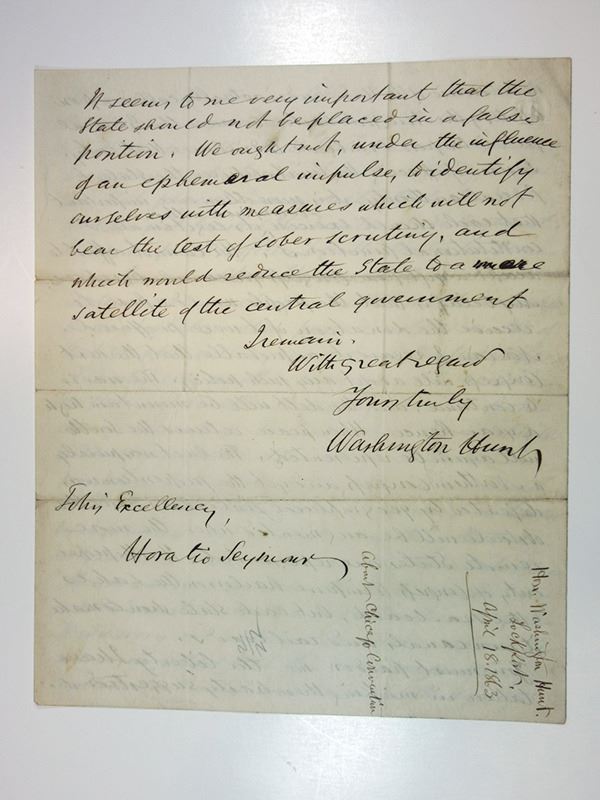 It seems to me very important that the
State should not be placed in a false
position. We ought not, under the influence
of an ephemeral impulse, to identify
ourselves with measures which will not
bear the test of sober scrutiny, and
which would reduce the State to a mere
satellite of the central government
I remain.
With great regard
Yours truly
Washington Hunt
To his Excellency,
Horatio Seymour
About Chicago Convention
Hon. Washington Hunt.
Lockport,
April 18. 1863